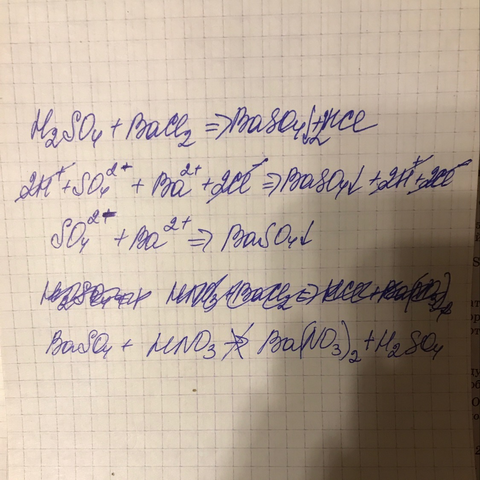 H₂SO₄ + BaCl₂ => BaSO₄↓ + 2HCl
2H⁺ + SO₄²⁻ + Ba²⁺ + 2Cl⁻ => BaSO₄↓ + 2H⁺ + 2Cl⁻
SO₄²⁻ + Ba²⁺ => BaSO₄↓
BaSO₄ + HNO₃ ≠> Ba(NO₃)₂ + H₂SO₄